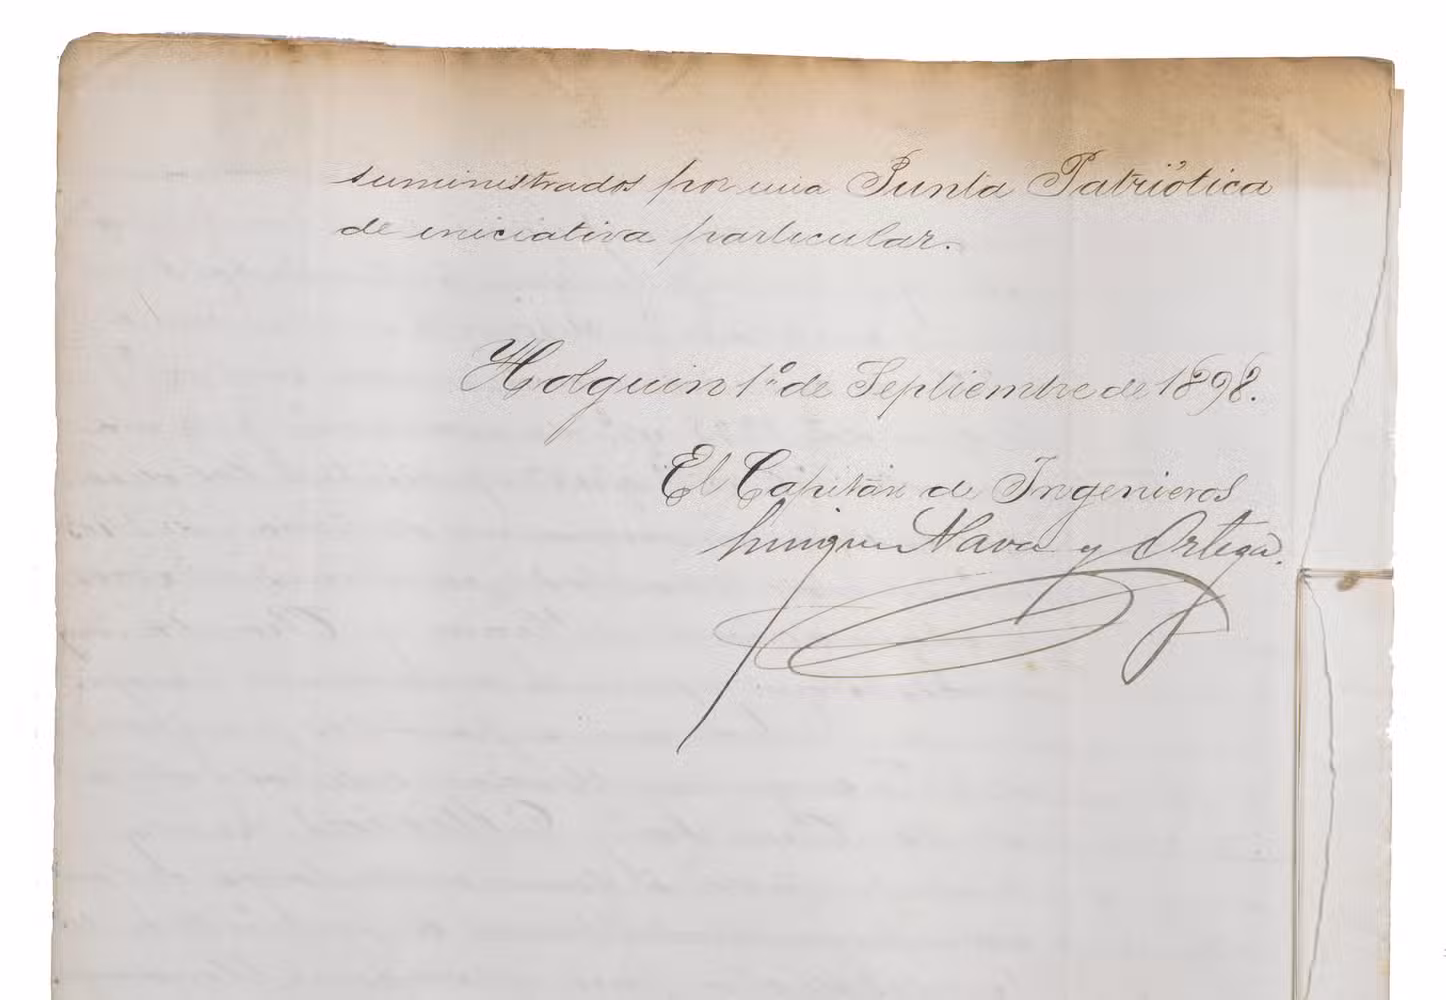 suministrados por una Junta Patriótica
de iniciativa particular.
Holguin 1º de Septiembre de 1898.
El Capitán de Ingenieros
Nava y Ortega.